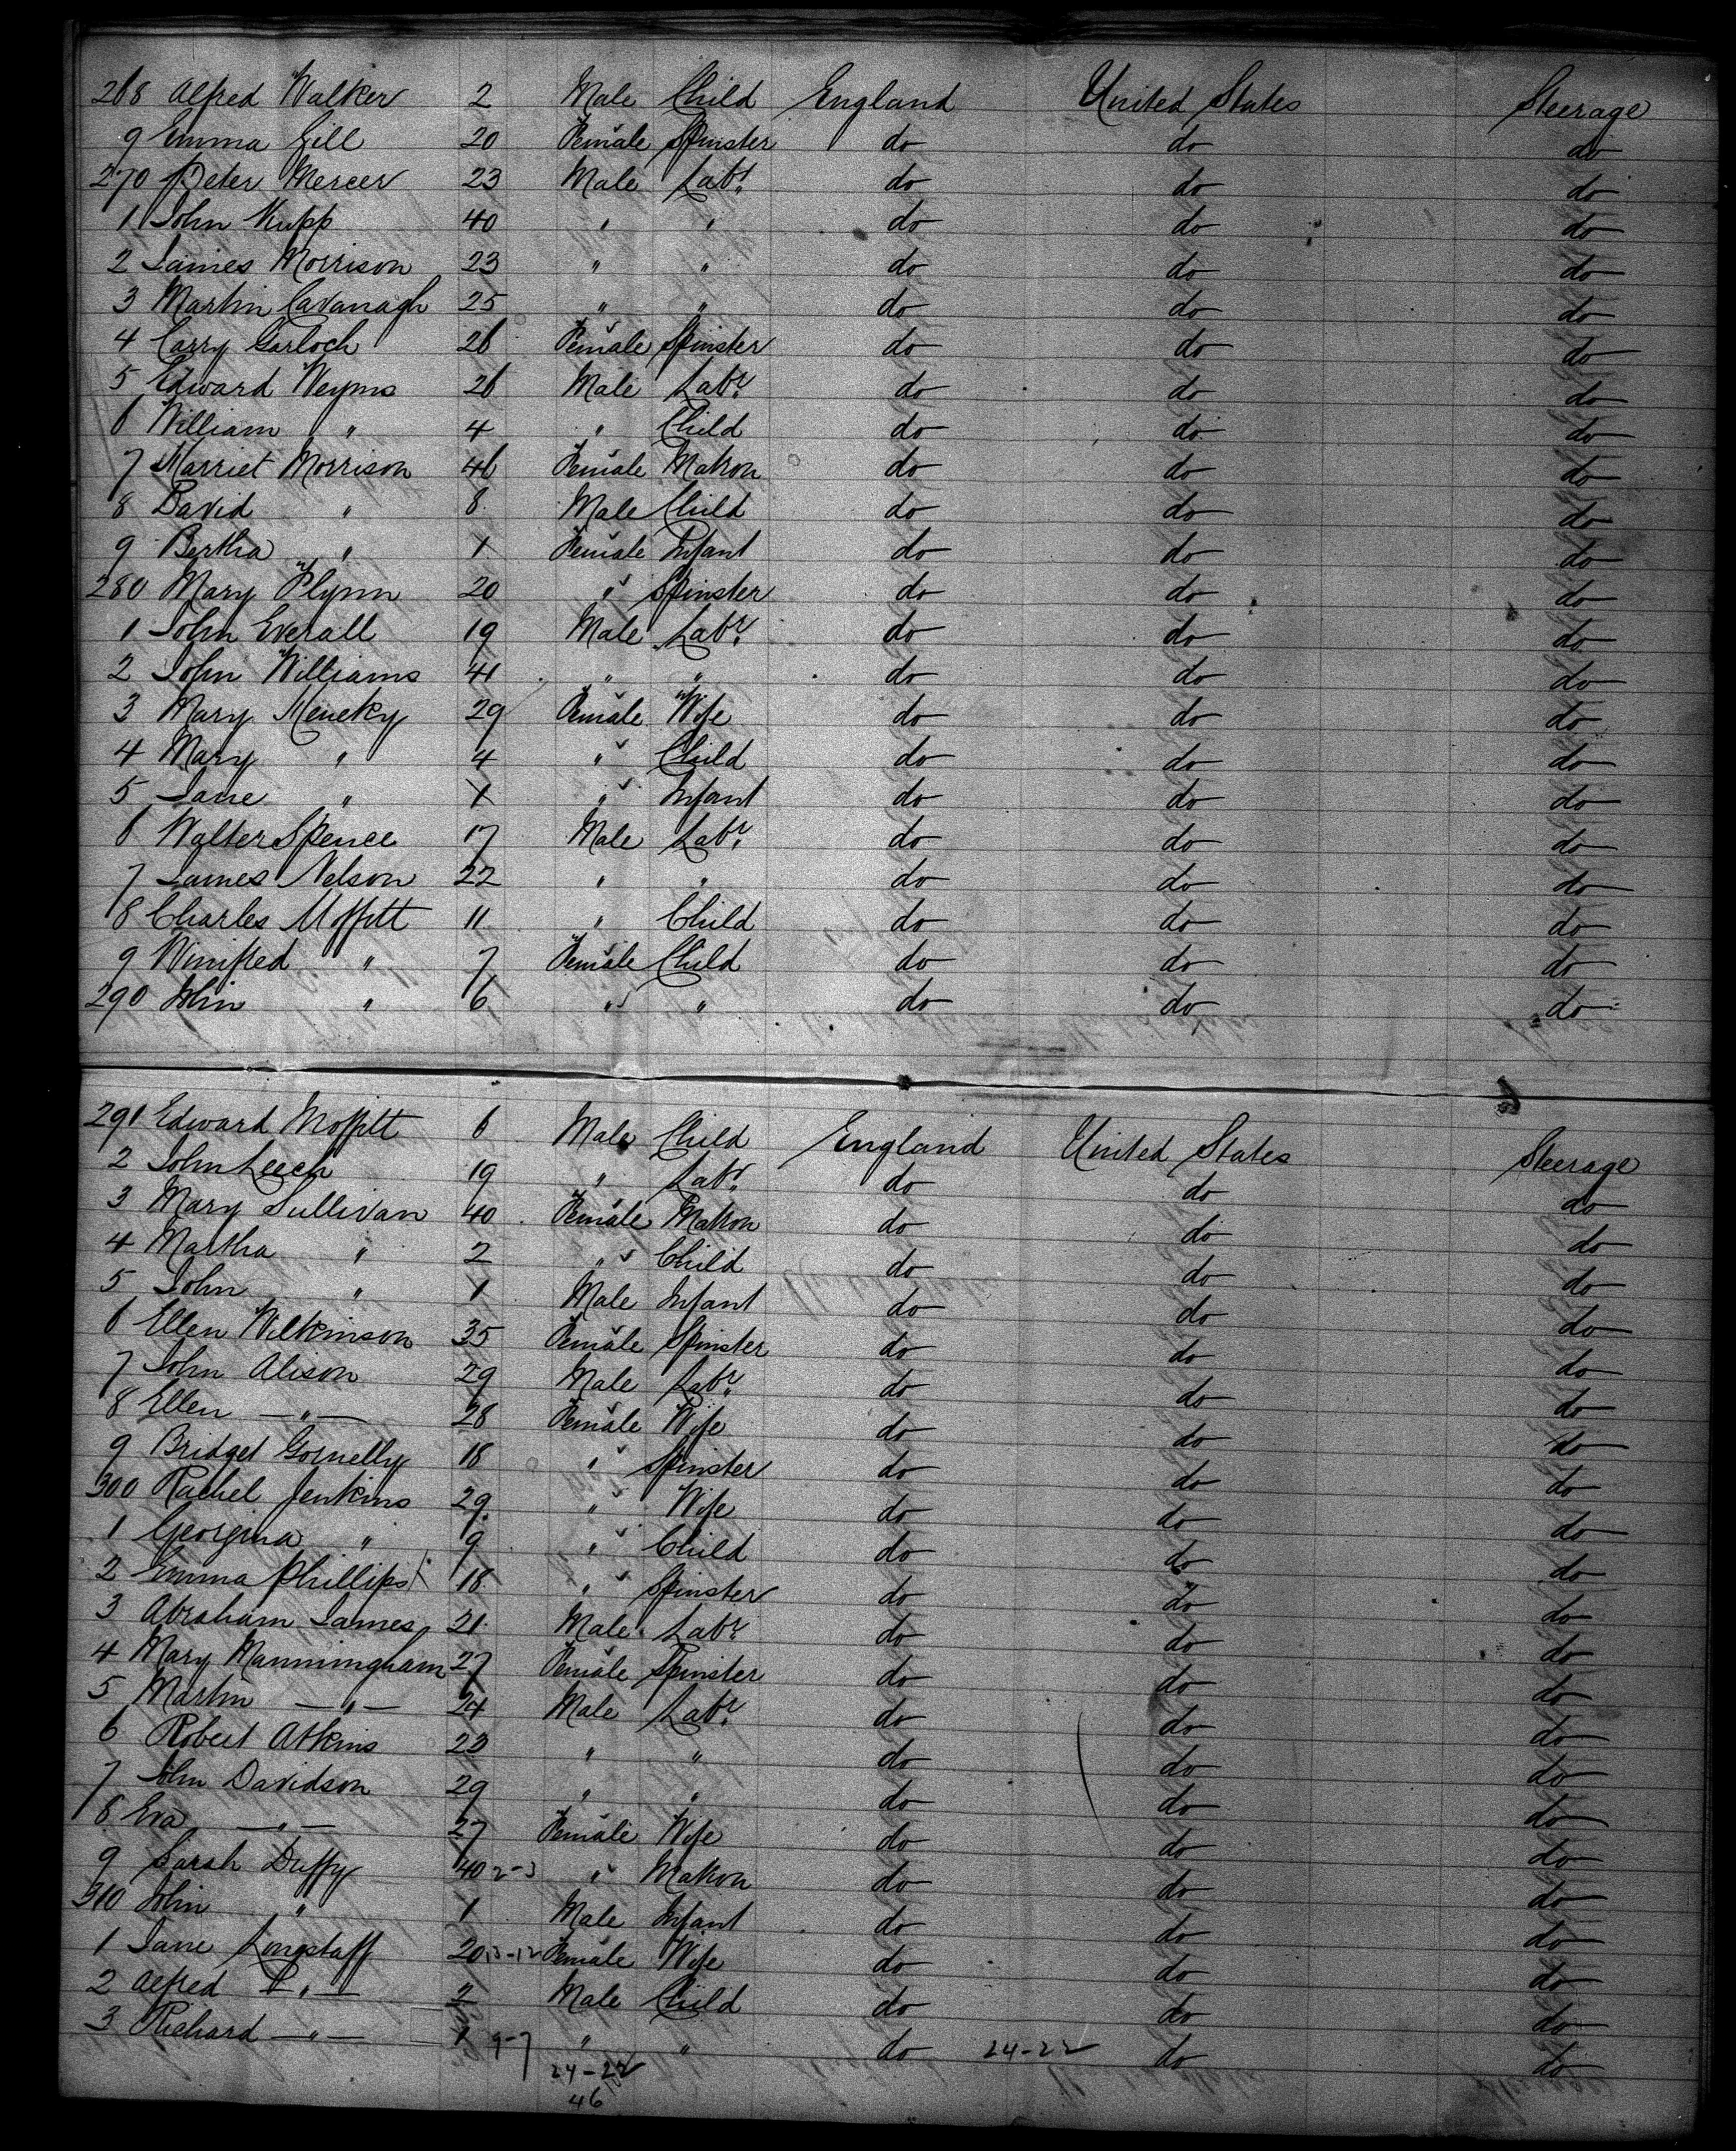 268 Alfred Walker 2 Male Child England United States Steerage
9 Emma Gill 20 Female Spinster do do do
270 Peter Mercer 23 Male Labr. do do do
1 John Kupp 40 " " do do do
2 James Morrison 23 " " do do do
3 Martin Cavanagh 25 " " do do do
4 Carry Garloch 26 Female Spinster do do do
5 Edward Weyms 26 Male Labr. do do do
6 William " 4 " Child do do do
7 Harriet Morrison 46 Female Matron do do do
8 David " 8 Male Child do do do
9 Bertha " 1 Female Infant do do do
280 Mary Flynn 20 " Spinster do do do
1 John Everall 19 Male Labr. do do do
2 John Williams 41 " " do do do
3 Mary Meneky 29 Female Wife do do do
4 Mary " 4 " Child do do do
5 Jane " 1 " Infant do do do
6 Walter Spence 17 Male Labr. do do do
7 James Nelson 22 " " do do do
8 Charles Moffitt 11 " Child do do do
9 Winifred " 7 Female Child do do do
290 John " 6 " " do do do
291 Edward Moffitt 6 Male Child England United States Steerage
2 John Leech 19 " Labr. do do do
3 Mary Sullivan 40 Female Matron do do do
4 Martha " 2 " Child do do do
5 John " 1 Male Infant do do do
6 Ellen Wilkinson 35 Female Spinster do do do
7 John Alison 29 Male Labr. do do do
8 Ellen — " — 28 Female Wife do do do
9 Bridget Gornelly 18 " Spinster do do do
300 Rachel Jenkins 29 " Wife do do do
1 Georgina " 9 " Child do do do
2 Emma Phillips 18 " Spinster do do do
3 Abraham James 21 Male Labr. do do do
4 Mary Manningham 27 Female Spinster do do do
5 Martin — " — 24 Male Labr. do do do
6 Robert Atkins 23 " " do do do
7 John Davidson 29 " " do do do
8 Eva — " — 27 Female Wife do do do
9 Sarah Duffy 40 2-3 " Matron do do do
310 John " 1 Male Infant do do do
1 Jane Longstaff 20 13-12 Female Wife do do do
2 Alfred — " — 2 Male Child do do do
3 Richard — " — 1 9-7 " " do 24-22 do do
24-22
46